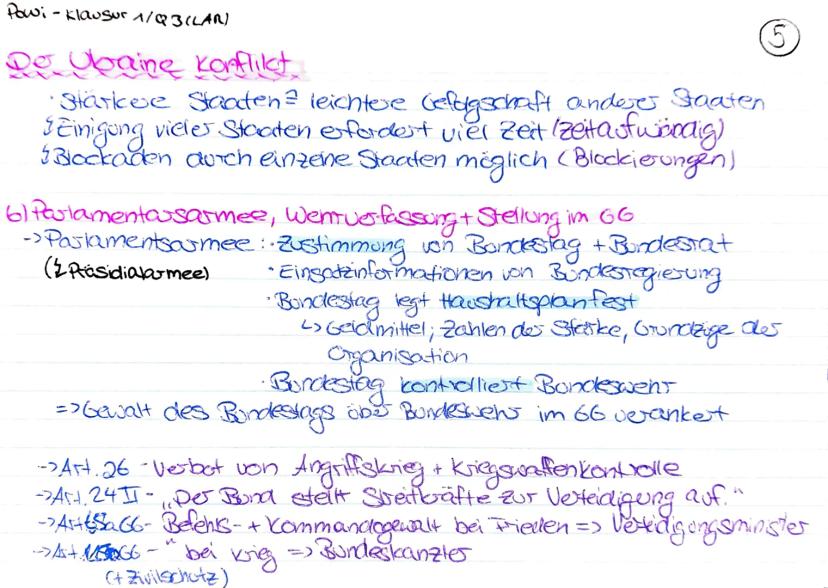 Powi - Klausur 1/Q3(LAR)
5
Der Ukraine Konflikt
· Stärkere Staaten ≙ leichtere Gefolgschaft anderer Staaten
↯ Einigung vieler Staaten erfordert viel Zeit (zeitaufwändig)
↯ Blockaden durch einzelne Staaten möglich (Blockierungen)
6) Parlamentarsarmee, Wehrverfassung + Stellung im GG
-> Parlamentsarmee: · Zustimmung von Bundestag + Bundesrat
(↯ Präsidialarmee) · Einsatzinformationen von Bundesregierung
· Bundestag legt Haushaltsplan fest
↳ Geldmittel; Zahlen der Stärke, Grundzüge der
Organisation
· Bundestag kontrolliert Bundeswehr
=> Gewalt des Bundestags über Bundeswehr im GG verankert
-> Art. 26 - Verbot von Angriffskrieg + Kriegswaffenkontrolle
-> Art. 24 II - „Der Bund stellt Streitkräfte zur Verteidigung auf."
-> Art 65a GG - Befehls- + Kommandogewalt bei Frieden => Verteidigungsminister
-> Art. GG - " bei Krieg => Bundeskanzler
(+ Zivilschutz)